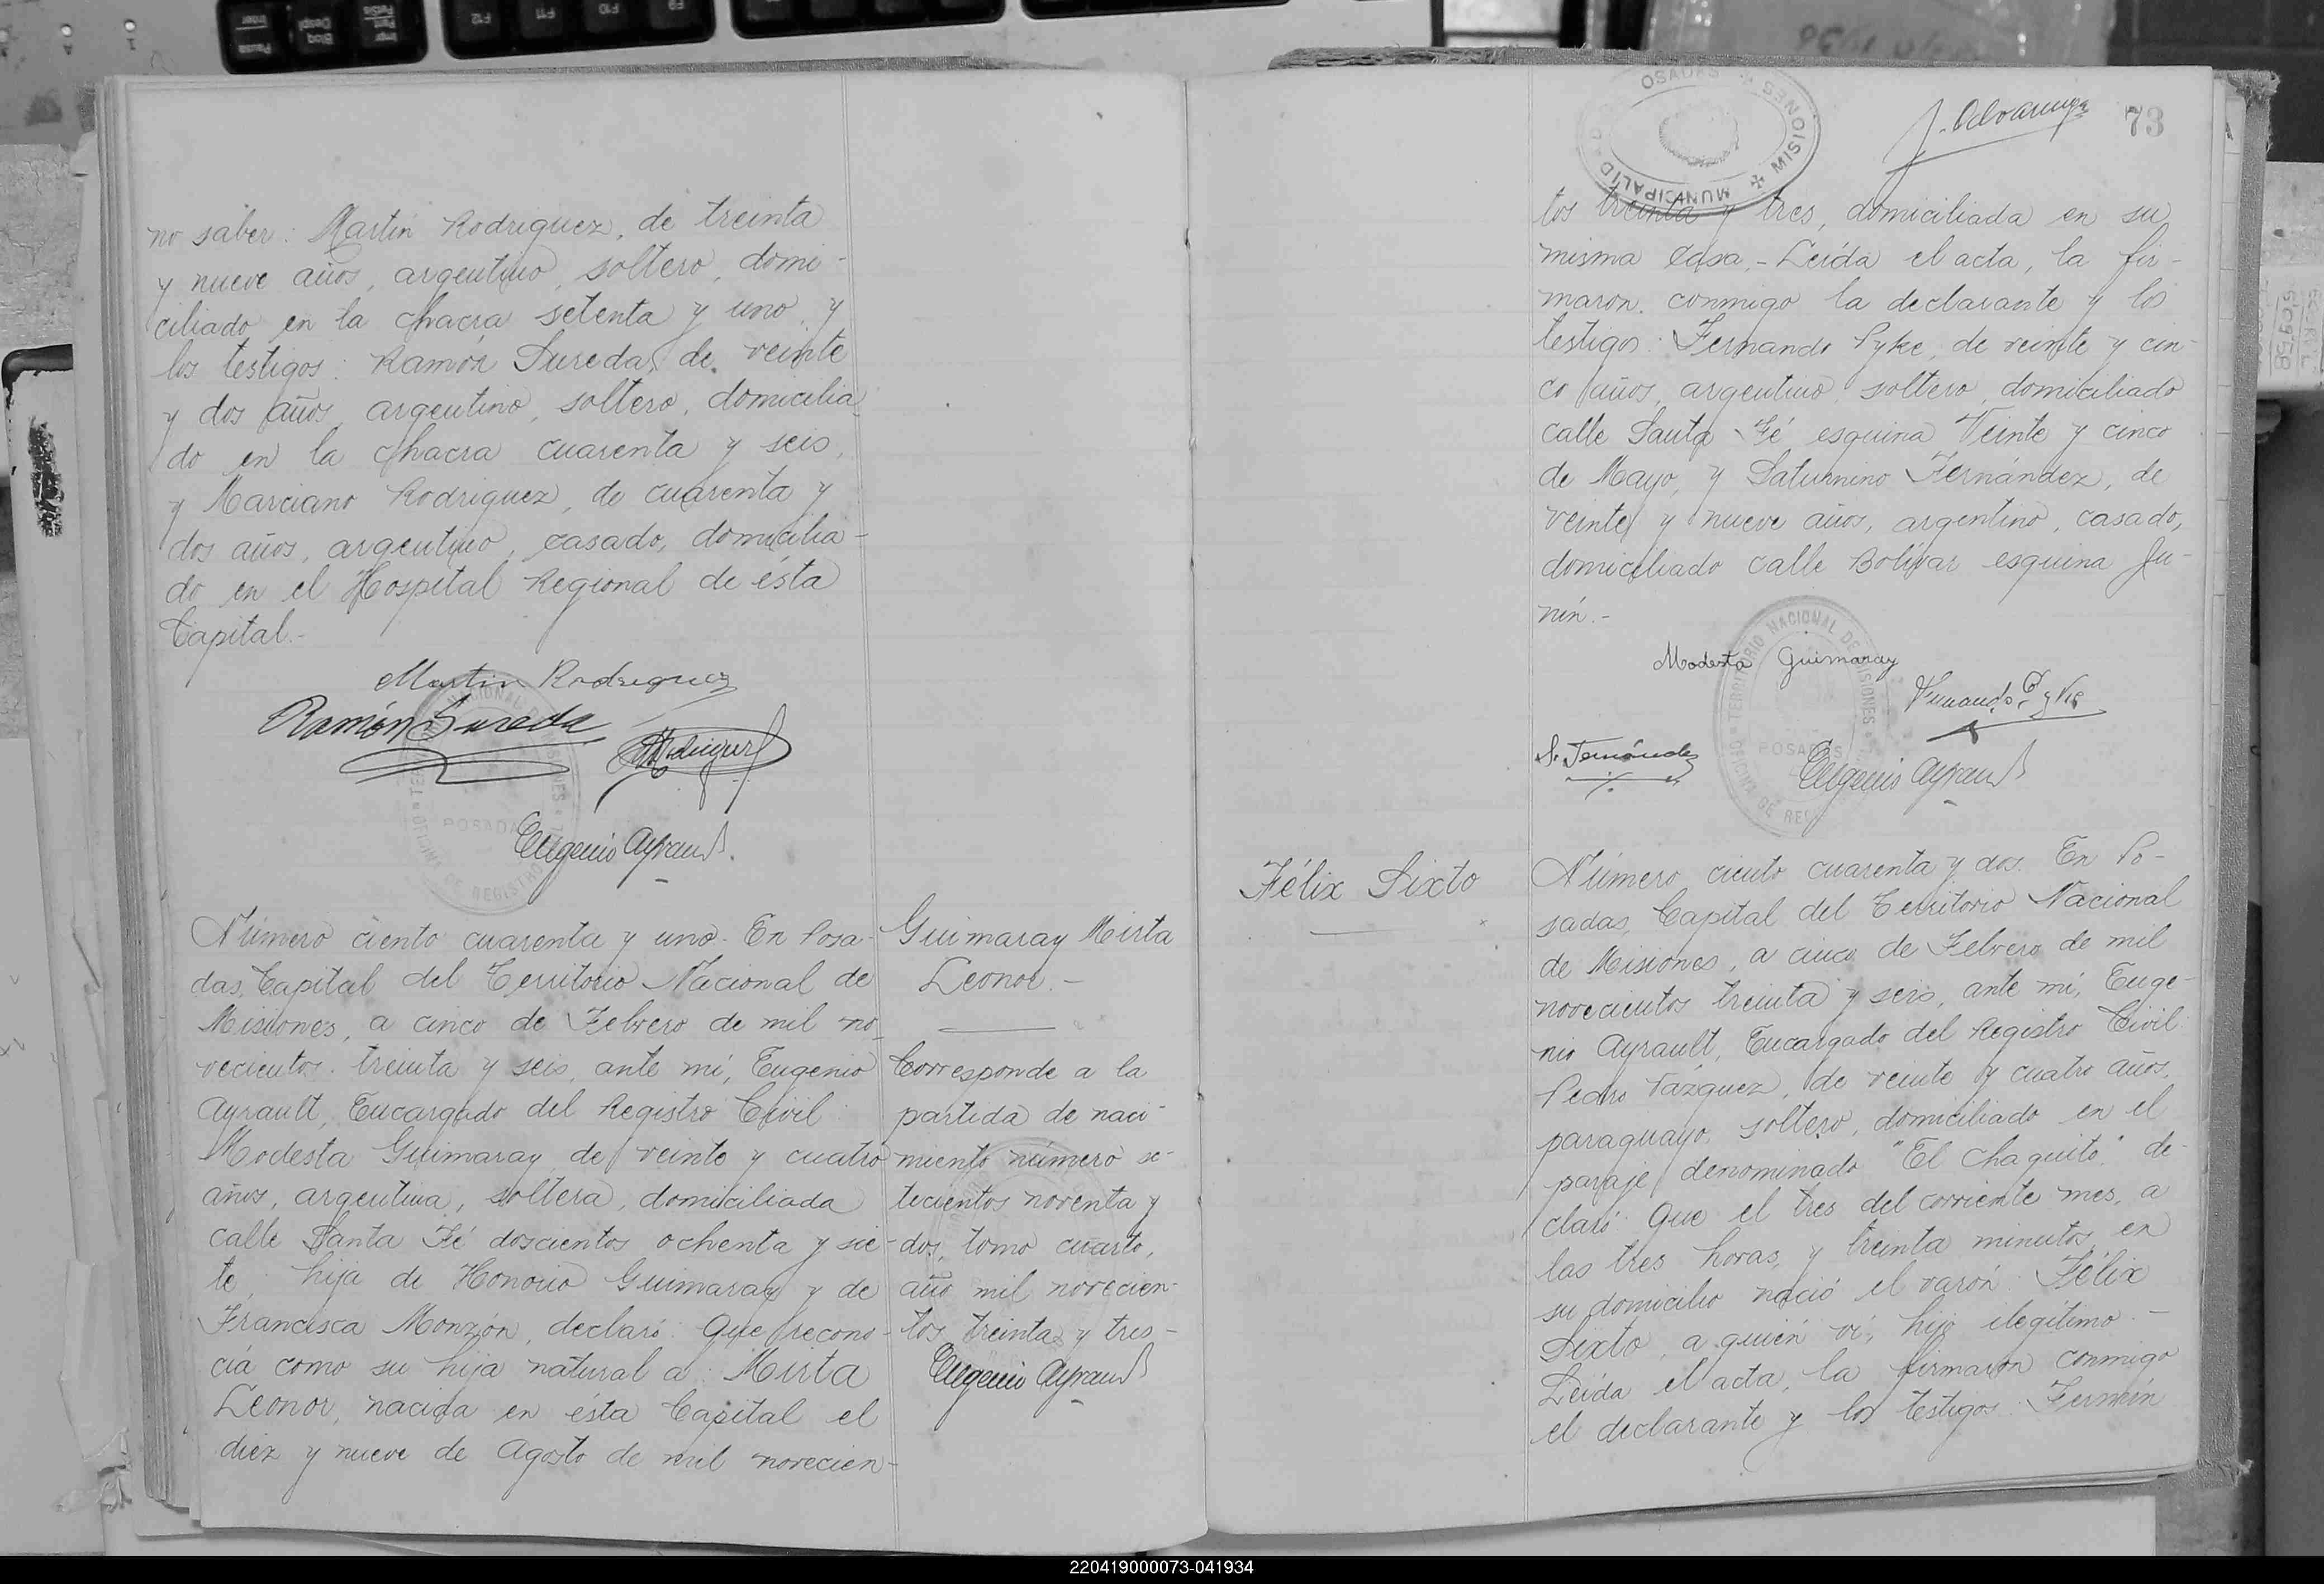 no saber: Martín Rodriguez, de treinta
y nueve años, argentino, soltero, domi-
ciliado en la chacra setenta y uno, y
los testigos: Ramón Sureda, de veinte
y dos años, argentino, soltero, domicilia
do en la chacra cuarenta y seis,
y Marciano Rodriguez, de cuarenta y
dos años, argentino, casado, domicilia-
do en el Hospital Regional de ésta
Capital.-
Martin Rodriguez
Ramón Sureda
Eugenio Ayrault.
Número ciento cuarenta y uno. En Posa-
das, Capital del Territorio Nacional de
Misiones, a cinco de Febrero de mil no-
vecientos treinta y seis, ante mí, Eugenio
Ayrault, Encargado del Registro Civil:
Modesta Guimaray, de veinte y cuatro
años, argentina, soltera, domiciliada
calle Santa Fé doscientos ochenta y sie-
te, hija de Honorio Guimaray y de
Francisca Monzón, declaró: Que recono-
cía como su hija natural a: Mirta
Leonor, nacida en ésta Capital el
diez y nueve de Agosto de mil novecien-
Guimaray Mirta
Leonor.-
Corresponde a la
partida de naci-
miento número se-
tecientos noventa y
dos, tomo cuarto,
año mil novecien-
tos treinta y tres-
Eugenio Ayrault
OSADAS MISIONES
MUNICIPALID
73
tos treinta y tres, domiciliada en su
misma casa.- Leída el acta, la fir-
maron conmigo la declarante y los
testigos: Fernando Pyke, de veinte y cin-
co años, argentino, soltero, domiciliado
calle Santa Fé esquina Veinte y cinco
de Mayo, y Saturnino Fernández, de
veinte y nueve años, argentino, casado,
domiciliado calle Bolívar esquina Ju-
nín.-
TERRITORIO NACIONAL DE MISIONES
POSADAS
Modesta Guimaray
Fernando Pyke
S. Fernández
Eugenio Ayrault
Félix Sixto
Número ciento cuarenta y dos. En Po-
sadas, Capital del Territorio Nacional
de Misiones, a cinco de Febrero de mil
novecientos treinta y seis, ante mí, Euge-
nio Ayrault, Encargado del Registro Civil:
Pedro Vázquez, de veinte y cuatro años,
paraguayo, soltero, domiciliado en el
paraje denominado "El Chaquito," de-
claró: Que el tres del corriente mes, a
las tres horas, y treinta minutos, en
su domicilio nació el varón: Félix
Sixto, a quién ví, hijo ilegítimo.-
Leída el acta, la firmaron conmigo
el declarante y los testigos: Fermín
220419000073-041934